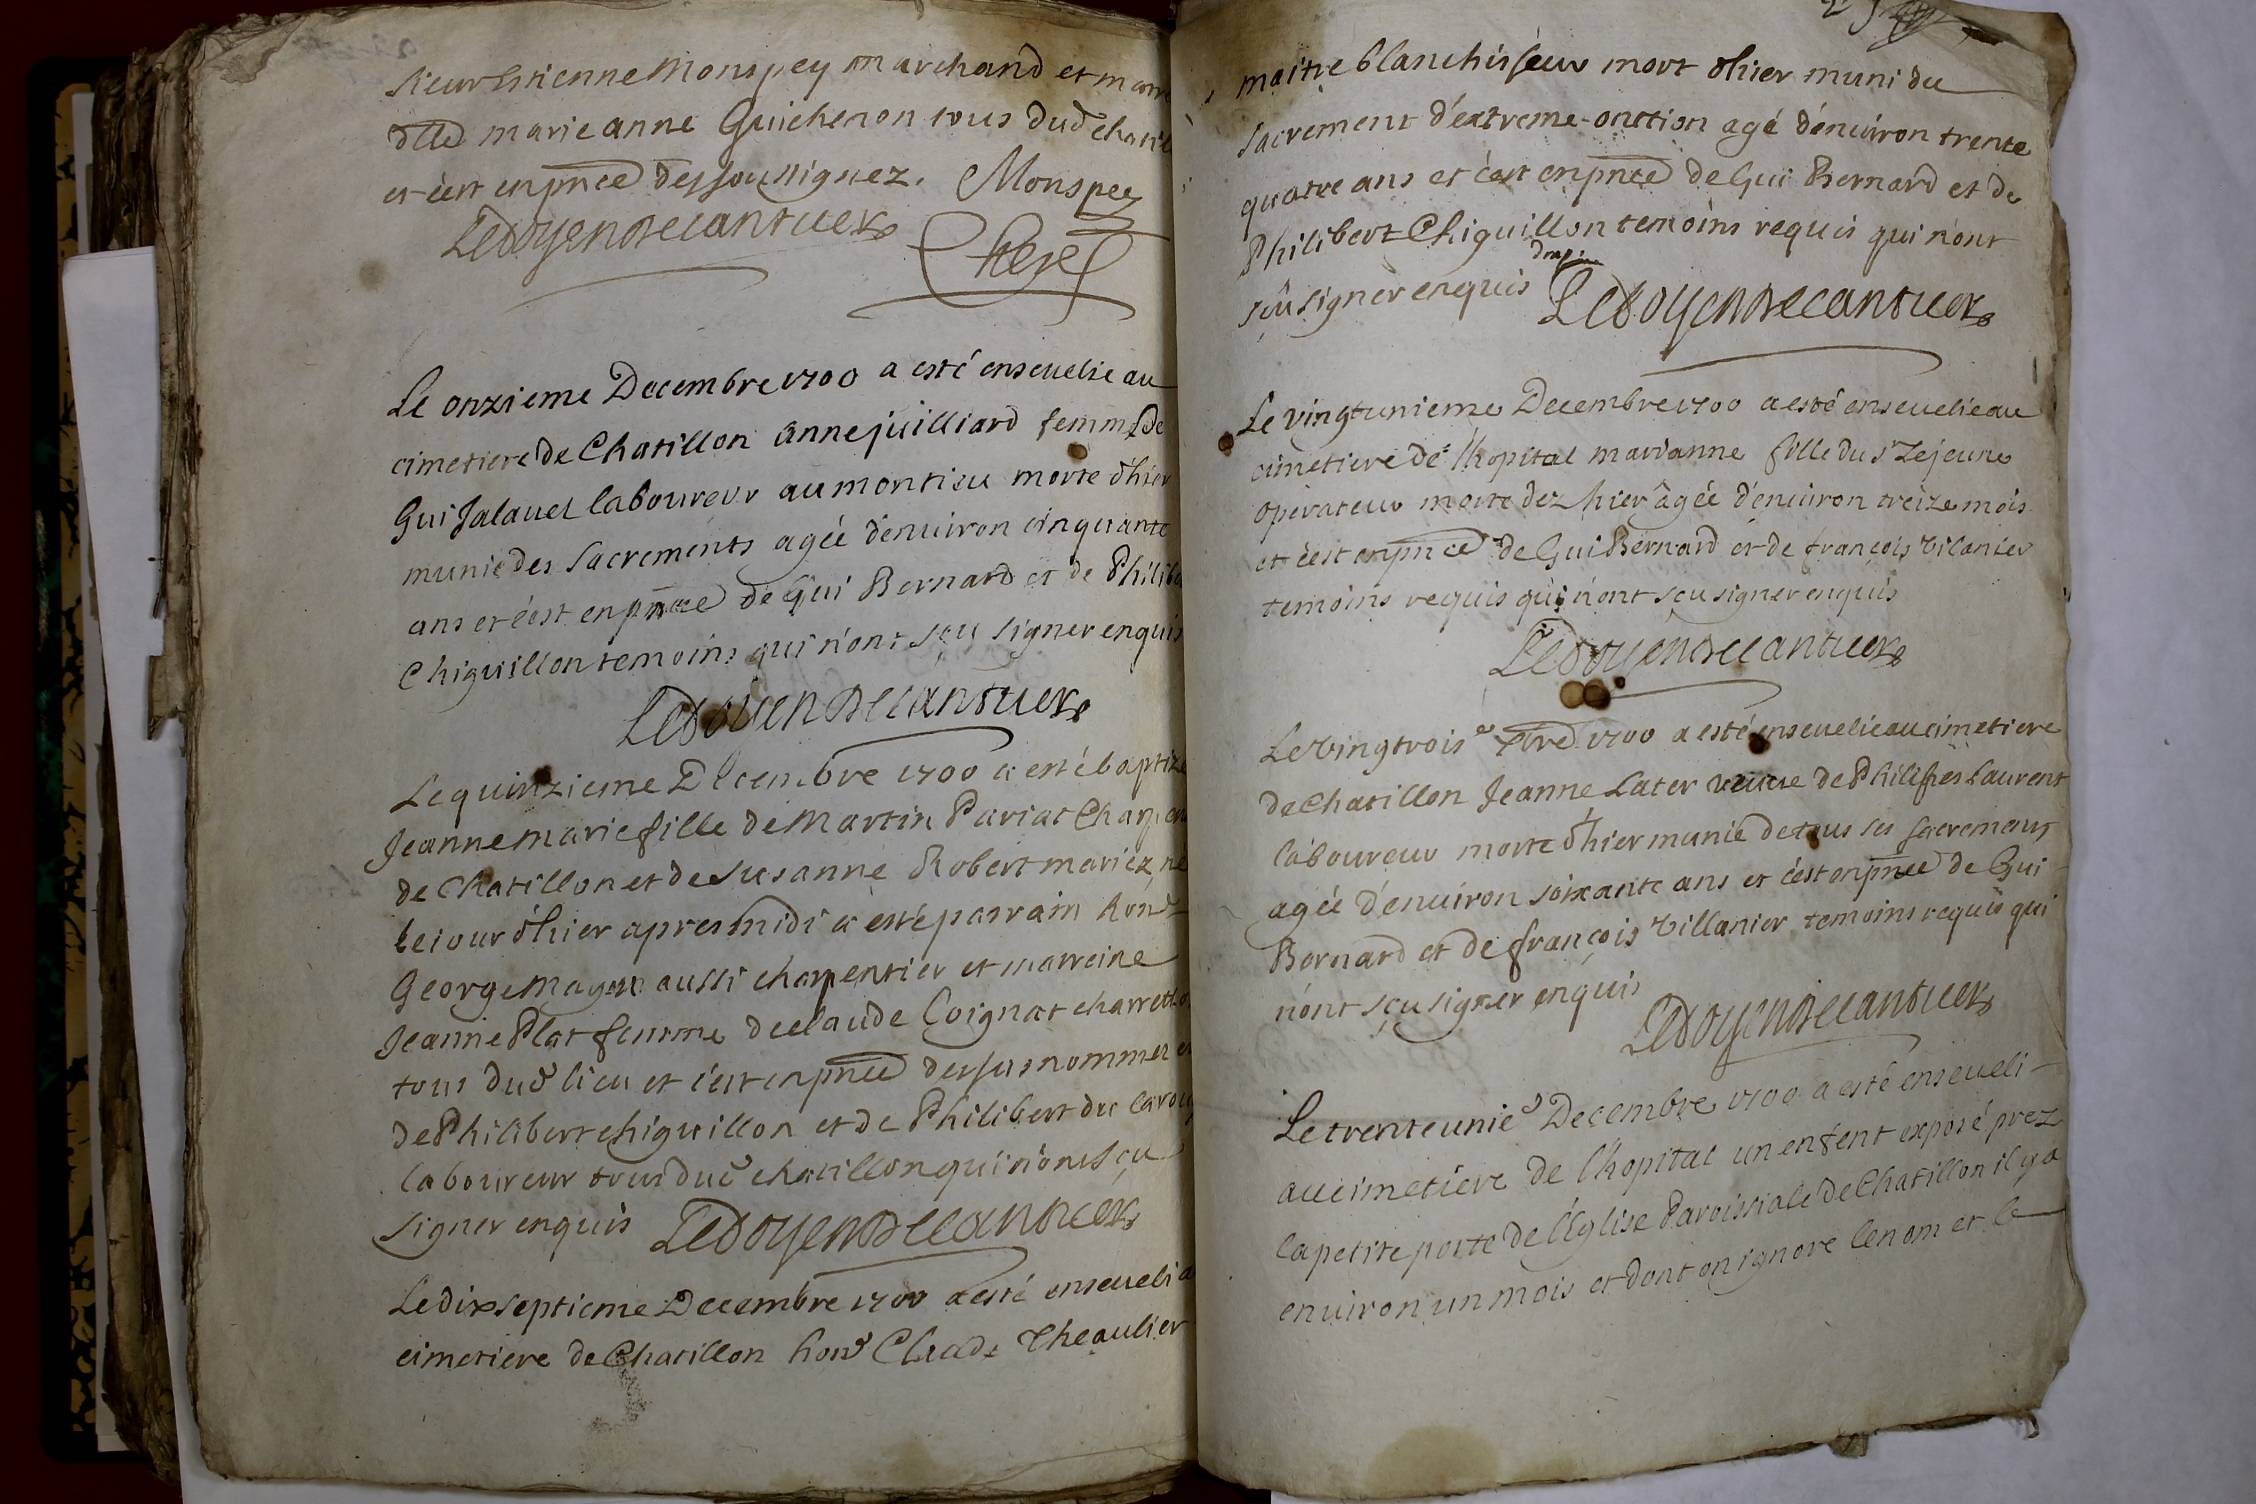 sieur Estienne Monspey marchand et marre
dlle marie anne Guichenon tous dud chatil
et c'est en pnce des soussignez. Monspey
Ledoyen de cantuer
Chere
Le onzieme Decembre 1700 a esté enseuelie au
cimetiere de Chatillon Anne juilliard femme de
Gui Jalauel laboureur au montisu morte d'hier
munie des sacrements agée d'enuiron cinquante
ans et c'est en pnce de Gui Bernard et de Philibe
Chiguillon temoins qui n'ont sçu signer enquis
Ledoyen de cantuer
Le quinzieme Decembre 1700 a esté baptize
Jeanne marie fille de Martin Pariat Charpen
de Chatillon et de Susanne Robert mariez, ne
le iour d'hier apres midi a esté parrain hond
George Mayen aussi charpentier et marreine
Jeanne Plat femme de claude Coignat charretto
tous dud lieu et c'est en pnce des susnommez et
de Philibert chiguillon et de Philibert du carou
laboureur tous dud chatillon qui n'ont sçu
signer enquis Ledoyen de cantuer
Le dix septieme Decembre 1700 a esté enseueli a
cimetiere de Chatillon hond Claude Theaulier
maitre blanchisseur mort d'hier muni du
sacrement d'extreme-onction agé d'enuiron trente
quatre ans et c'est en pnce de Gui Bernard et de
Philibert Chiguillon temoins requis qui n'ont
sçu signer enquis Ledoyen de cantuer
Le vingtunieme Decembre 1700 a esté enseuelie au
cimetiere de l'hopital marianne fille du sr Lejeune
operateur morte dez hier âgée d'enuiron treize mois
et c'est en pnce de Gui Bernard et de françois vilanier
temoins requis qui n'ont sçu signer enquis
Ledoyen de cantuer
Le vingtroise Xbre 1700 a esté enseuelie au cimetiere
de Chatillon Jeanne Later veuue de Philibert Laurent
laboureur morte d'hier munie de tous ses sacremens
agée d'enuiron soixante ans et c'est en pnce de Gui
Bernard et de françois Villanier temoins requis qui
n'ont sçu signer enquis
Ledoyen de cantuer
Le trente unie Decembre 1700 a esté enseueli
au cimetiere de l'hopital un enfent exposé prez
la petite porte de l'Eglise Paroissiale de Chatillon il y a
enuiron un mois et dont on ignore le nom et le